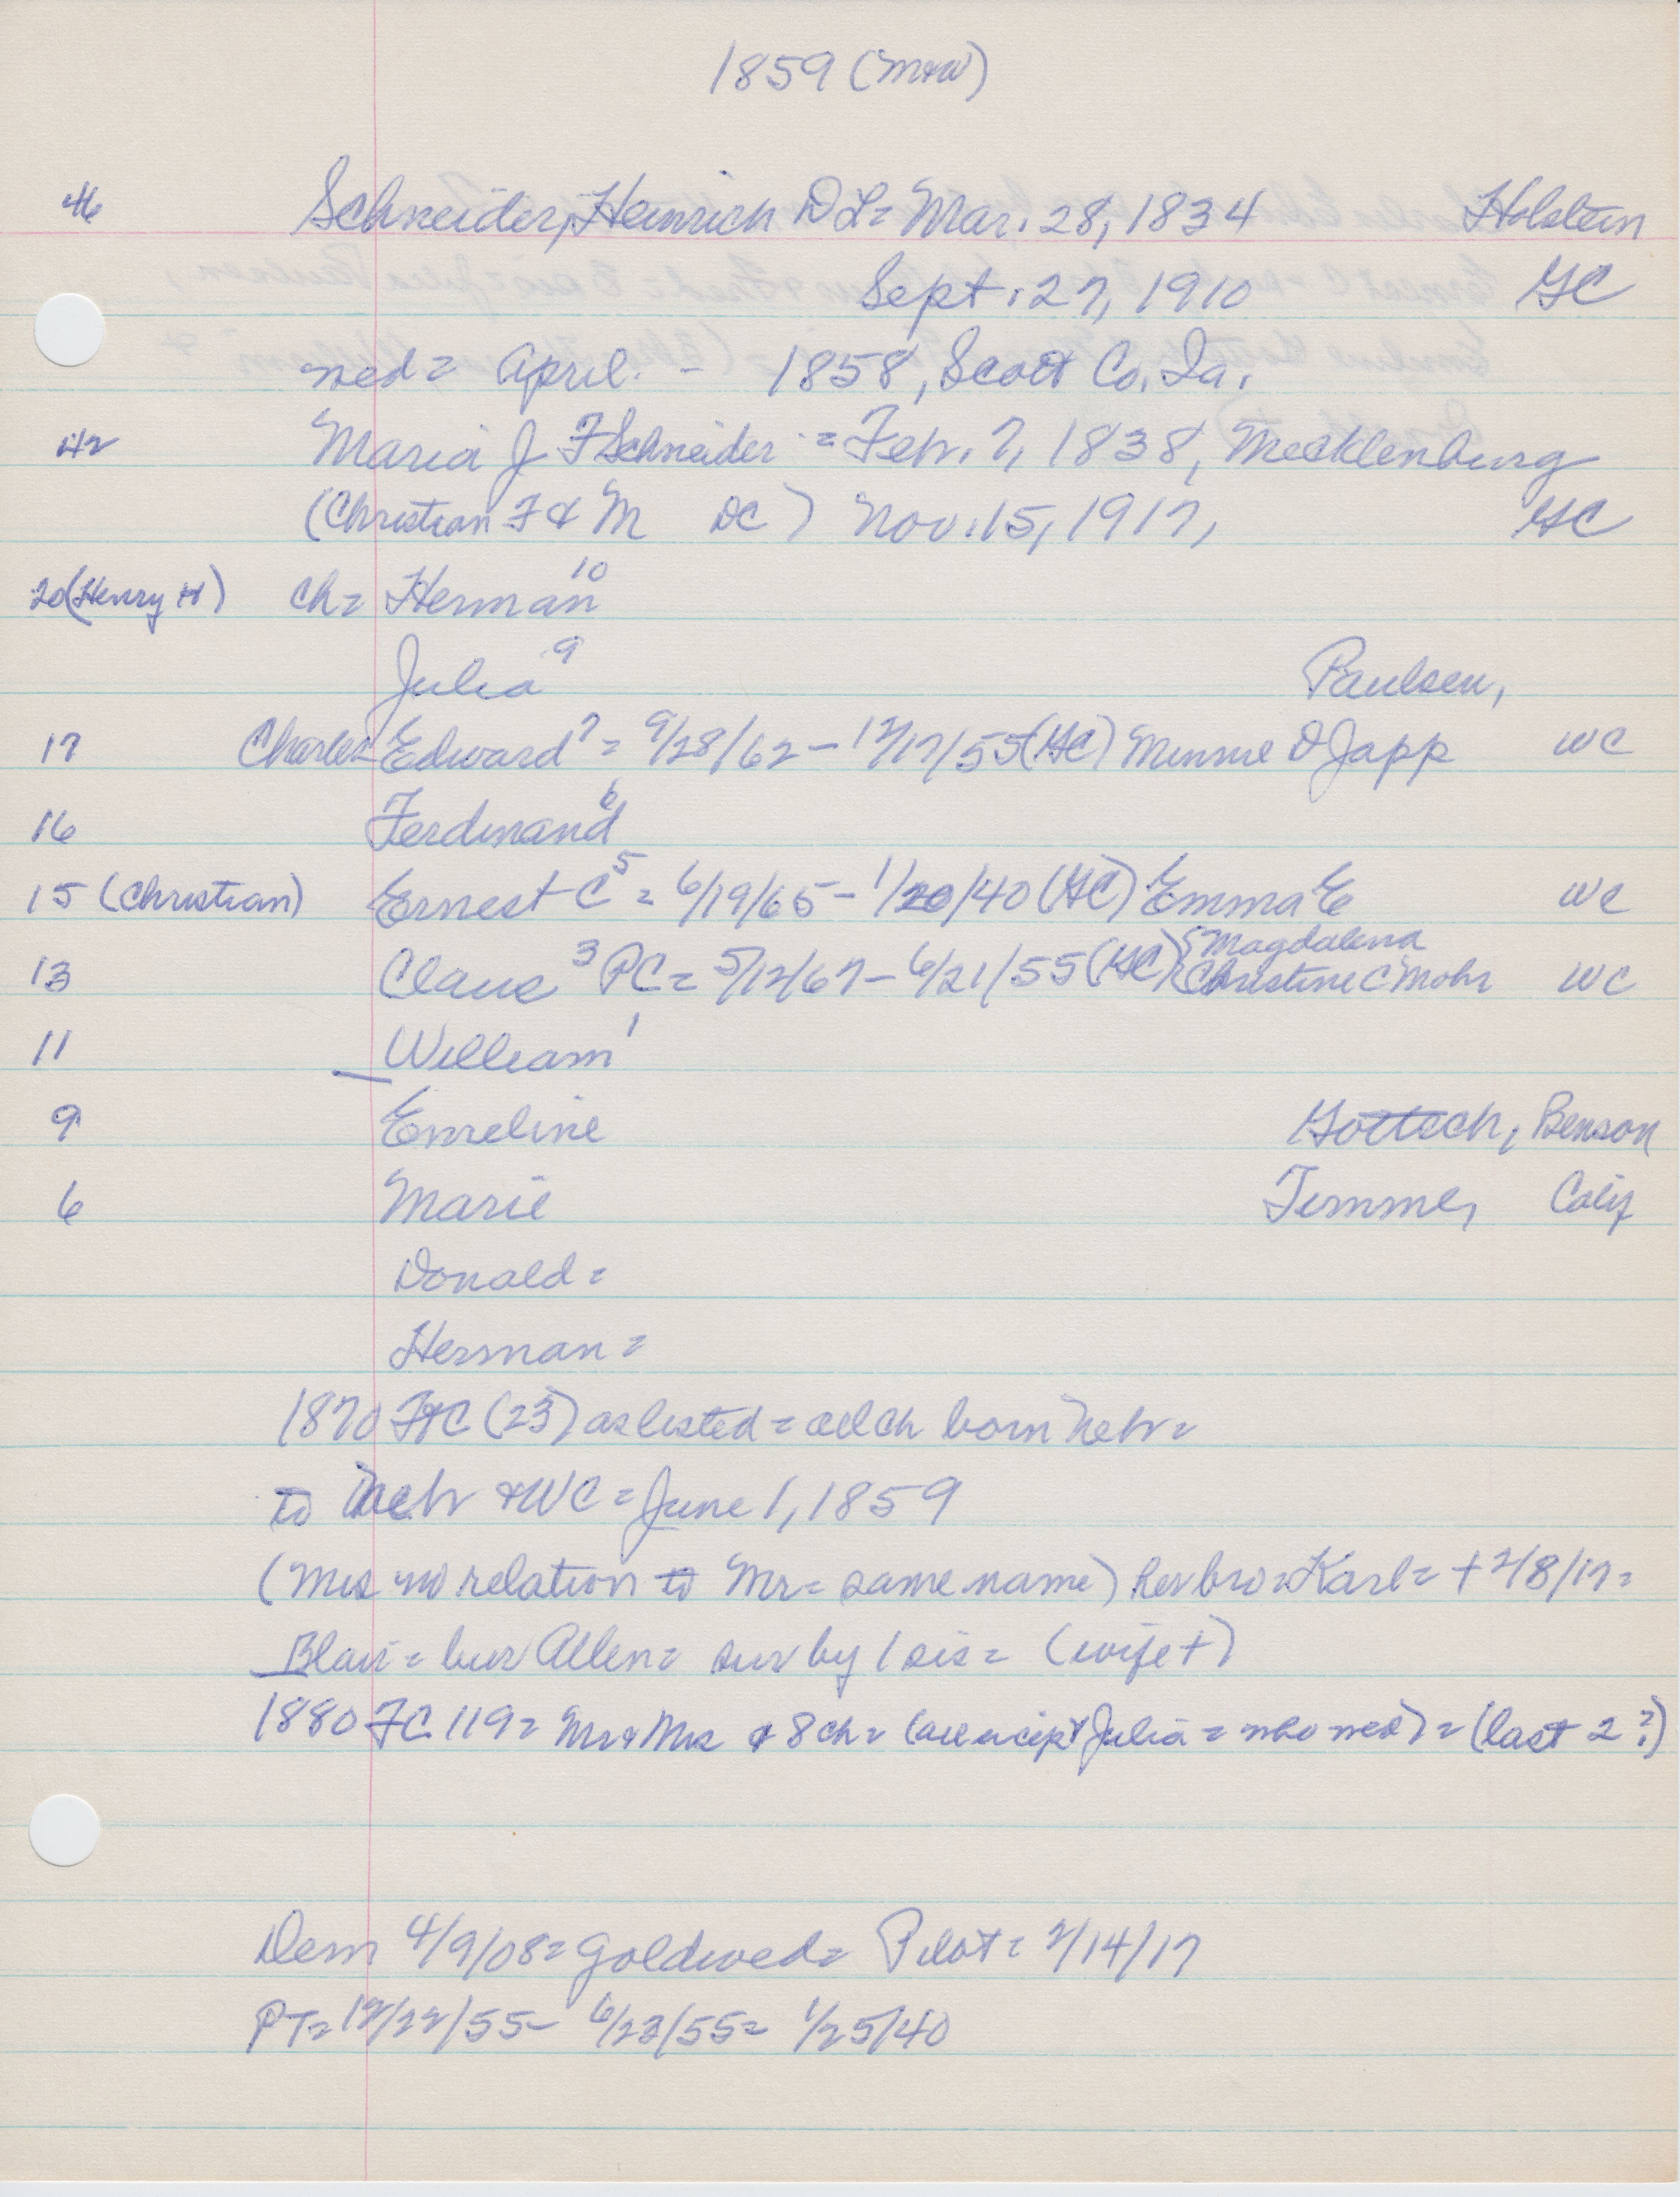 1859 (M+W)
46 Schneider, Heinrich D L = Mar. 28, 1834 Holstein
Sept. 27, 1910 GC
med = April. - 1858, Scott Co. Ia.
42 Maria J F Schneider = Feb. 7, 1838, Mecklenburg
(Christian F & M DC) Nov. 15, 1917, GC
20 (Henry H) ch = Herman 10
Julia 9 Paulsen,
17 Charles Edward 7 = 9/28/62 - 12/17/55 (GC) Minnie D Japp WC
16 Ferdinand 6
15 (Christian) Ernest C 5 = 6/19/65 - 1/20/40 (GC) Emma E WC
13 Claus 3 PC = 5/12/67 - 6/21/55 (GC) { Magdalena
Christine C Mohr WC
11 William 1
9 Emeline Gottsch, Benson
6 Marie Timme, Calif
Donald =
Herman =
1870 FtC (23) as listed = all ch born Nebr =
to Nebr & WC = June 1, 1859
(Mrs no relation to Mr = same name) her bro = Karl = + 2/8/17 =
Blair = bur Allen = sur by 1 sis = (wife +)
1880 FC 119 = Mr & Mrs & 8 ch = (all except Julia = who med) = (last 2?)
Dem 4/9/08 = gold wed = Pilot = 2/14/17
PT = 12/22/55 - 6/23/55 = 1/25/40